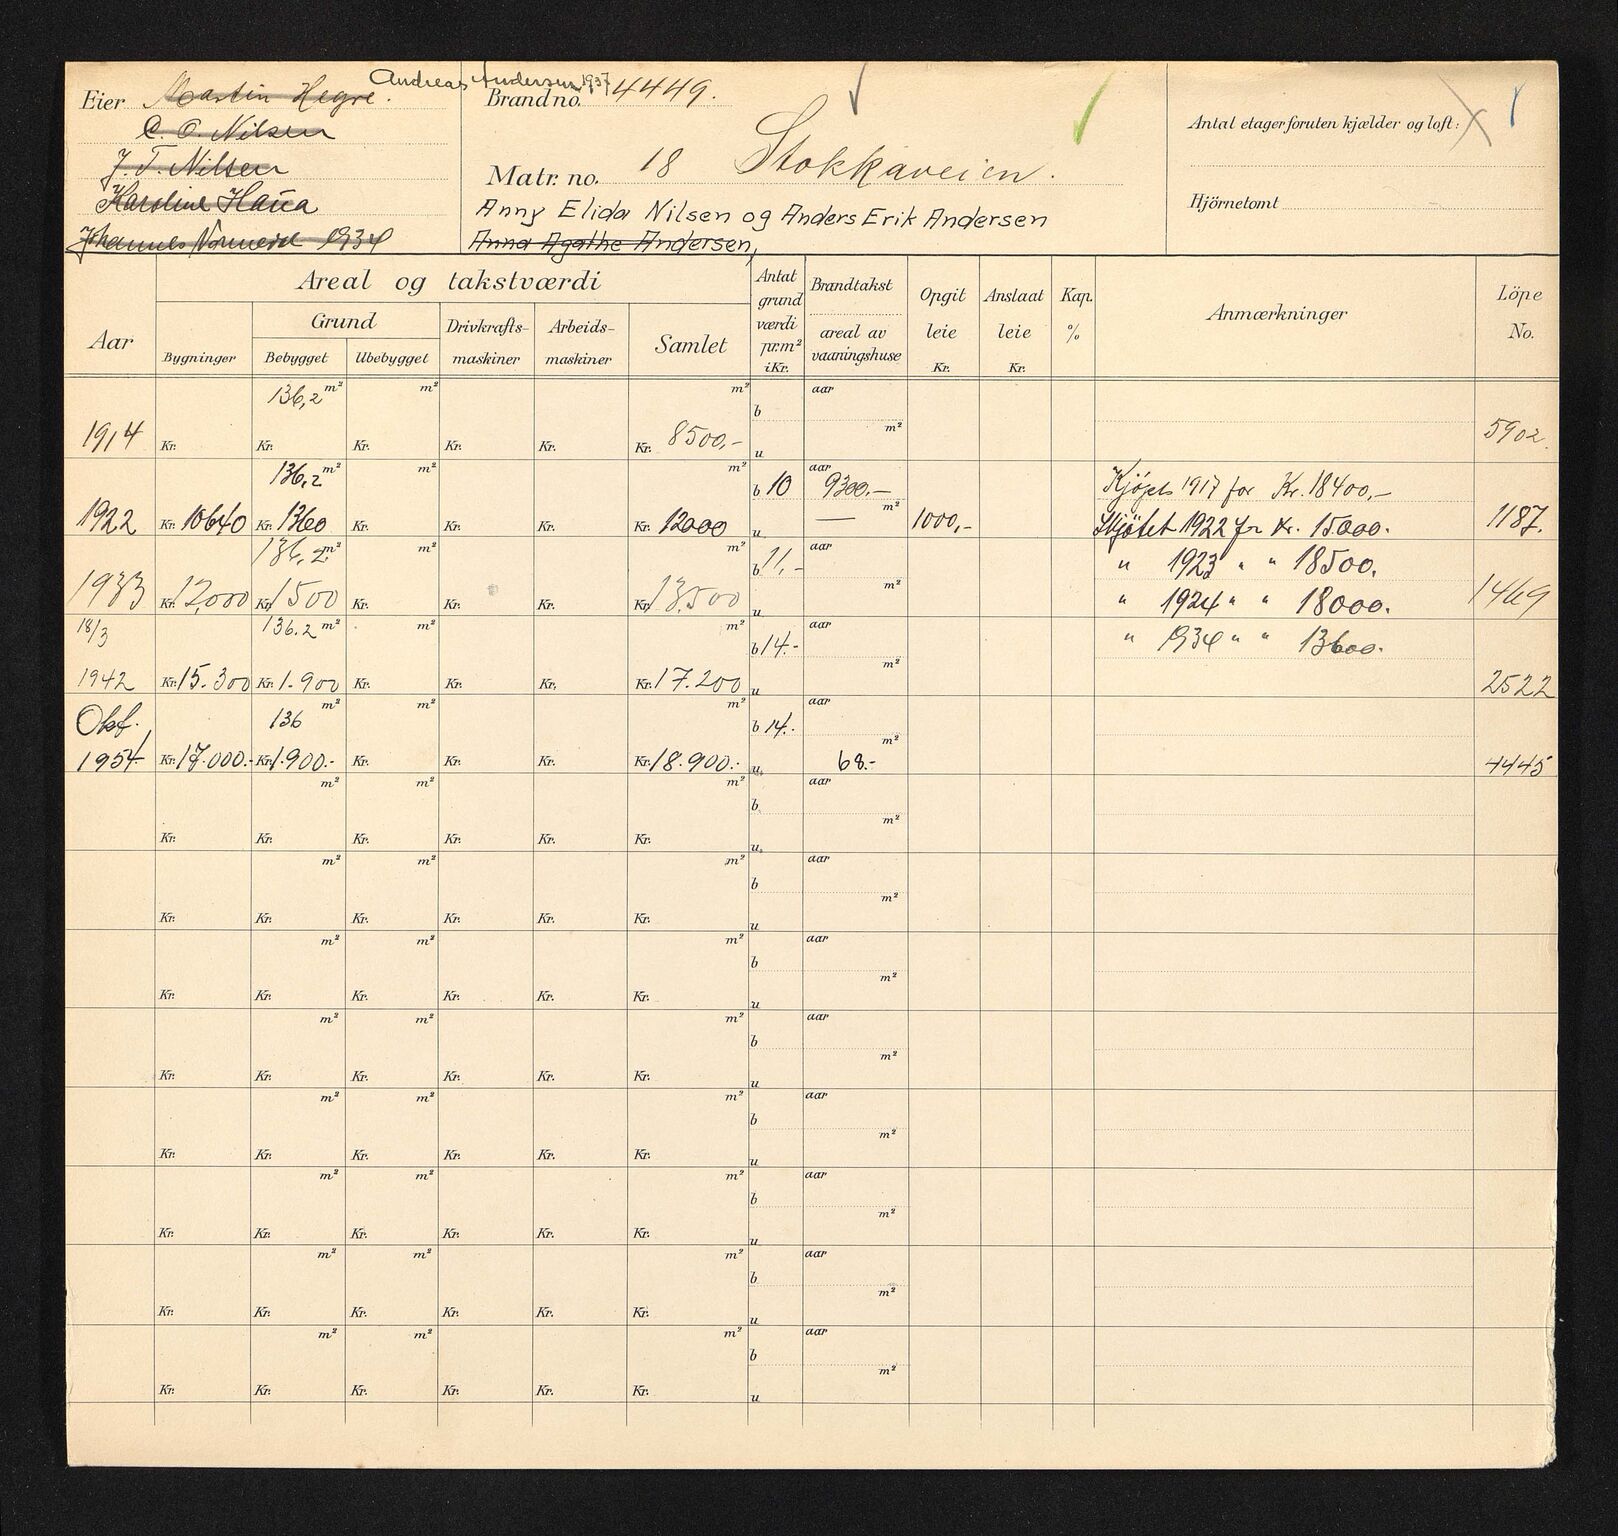 Eier Martin Hegre. Andreas Andersen 1937
C. O. Nilsen
J. T. Nilsen
Karoline Haua
Johannes 1934
Brand no. 4449.
Matr. no. 18 Stokkaveien.
Anny Elida Nilsen og Anders Erik Andersen
Anna Agathe Andersen,
Antal etager foruten kjælder og loft:
Hjörnetomt
Aar
Areal og takstværdi
Bygninger
Grund
Bebygget Ubebygget
Drivkrafts-maskiner
Arbeids-maskiner
Samlet
Antat grund værdi pr.m² i Kr.
Brandtakst
areal av vaaningshuse
Opgit leie Kr.
Anslaat leie Kr.
Kap. %
Anmærkninger
Löpe No.
136,2 m² m² m² aar
b m²
1914 Kr. Kr. Kr. Kr. Kr. Kr. 8500,- u 5902.
136,2 m² m² m² aar
b 10 9300.- Kjøpt 1917 for Kr. 18400,-
m²
1922 Kr. 10640 Kr. 1360 Kr. Kr. Kr. Kr. 12000 u — 1000,- Skjøtet 1922 for Kr. 15.000. 1187.
136,2 m² m² m² aar
b 11,- " 1923 " " 18500.
m²
1933 Kr. 12,000 Kr. 1500 Kr. Kr. Kr. Kr. 13,500 u " 1924 " " 18000. 1469
18/3 136.2 m² m² m² aar
b 14.- " 1934 " " 13600.
m²
1942 Kr. 15.300 Kr. 1.900 Kr. Kr. Kr. Kr. 17.200 u 2522
Okt. 136 m² m² m² aar
b 14.- m²
1954 Kr. 17.000.- Kr. 1.900.- Kr. Kr. Kr. Kr. 18.900.- u. 68.- 4445
m² m² m² aar
b m²
Kr. Kr. Kr. Kr. Kr. Kr. u.
m² m² m² aar
b m²
Kr. Kr. Kr. Kr. Kr. Kr. u
m² m² m² aar
b m²
Kr. Kr. Kr. Kr. Kr. Kr. u
m² m² m² aar
b m²
Kr. Kr. Kr. Kr. Kr. Kr. u
m² m² m² aar
b m²
Kr. Kr. Kr. Kr. Kr. Kr. u
m² m² m² aar
b m²
Kr. Kr. Kr. Kr. Kr. Kr. u
m² m² m² aar
b m²
Kr. Kr. Kr. Kr. Kr. Kr. u
m² m² m² aar
b m²
Kr. Kr. Kr. Kr. Kr. Kr. u